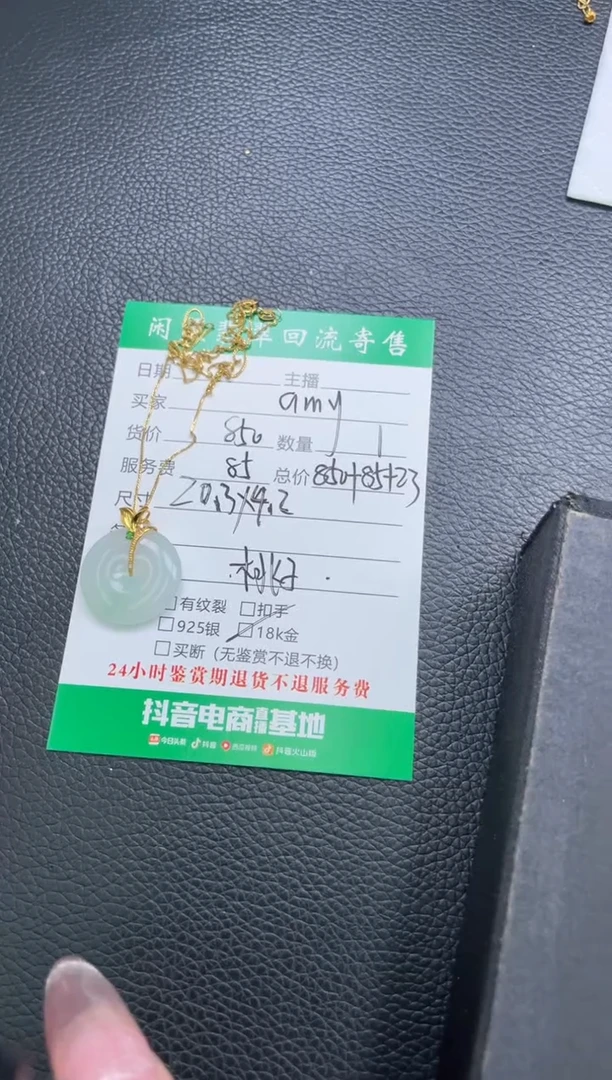 闲 翠回流寄售
日期 主播
买家 amy
货价 850 数量 1
服务费 85 总价 850+85+23
尺寸 20.3×4.2
有纹裂 扣手
925银 18k金
买断（无鉴赏不退不换）
24小时鉴赏期退货不退服务费
抖音电商直播基地
今日头条 抖音 西瓜视频 抖音火山版